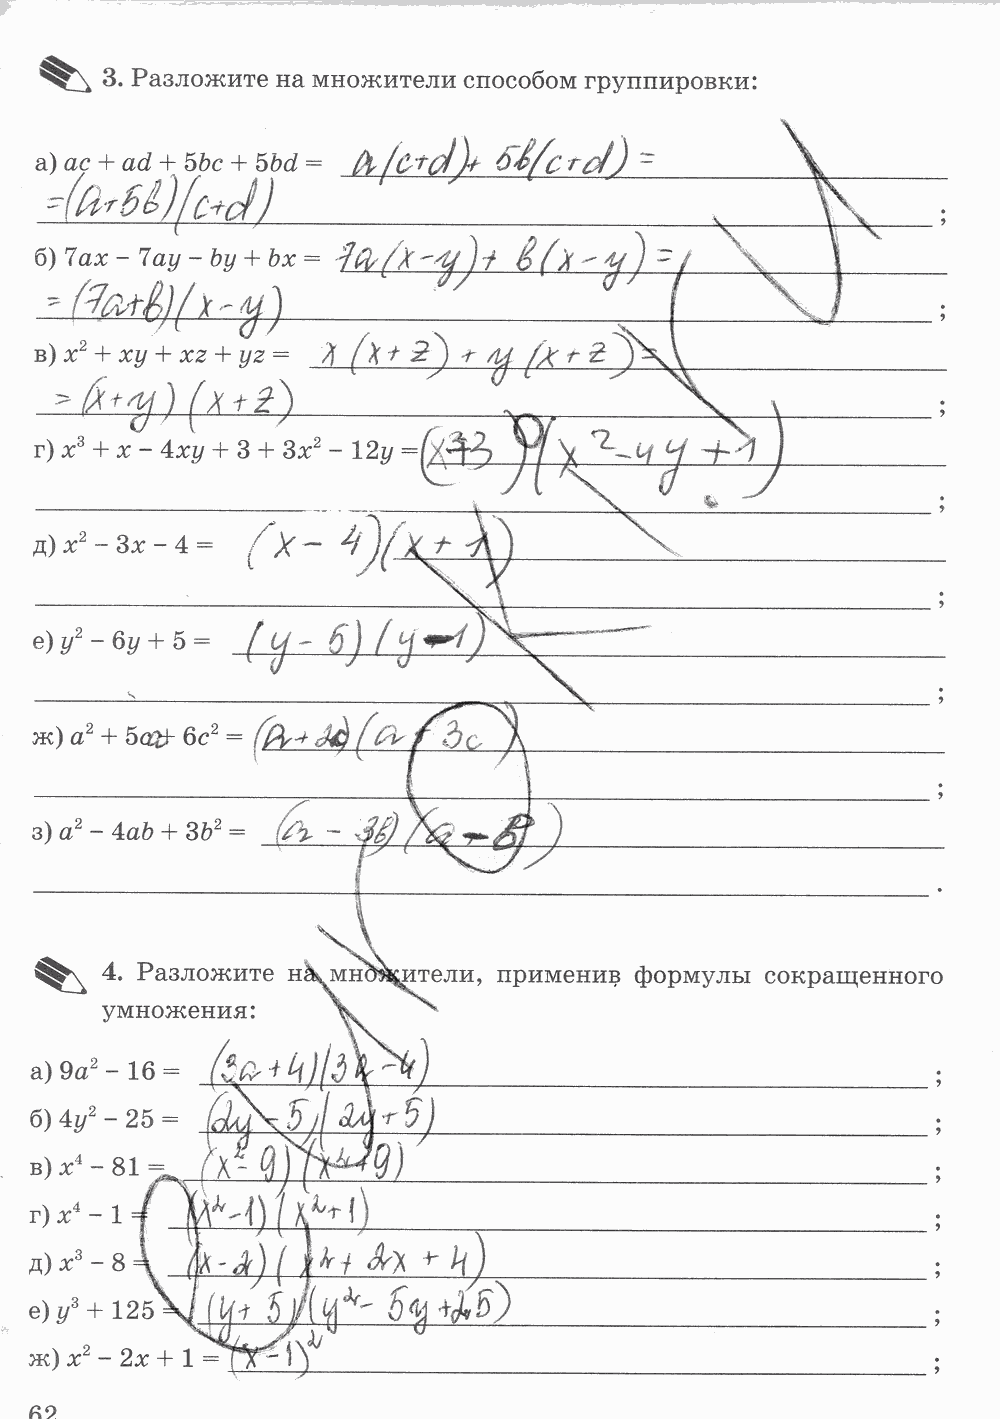 3. Разложите на множители способом группировки:
а) ac + ad + 5bc + 5bd = a(c+d)+ 5b(c+d) =
=(a+5b)(c+d) ;
б) 7ax − 7ay − by + bx = 7a(x−y)+ b(x−y) =
= (7a+b)(x−y) ;
в) x² + xy + xz + yz = x(x+z)+y(x+z)=
= (x+y)(x+z) ;
г) x³ + x − 4xy + 3 + 3x² − 12y = (x+3)(x²−4y+1)
;
д) x² − 3x − 4 = (x−4)(x+1)
;
е) y² − 6y + 5 = (y−5)(y−1)
;
ж) a² + 5ca + 6c² = (a+2c)(a+3c)
;
з) a² − 4ab + 3b² = (a−3b)(a−b)
.
4. Разложите на множители, применив формулы сокращенного
умножения:
а) 9a² − 16 = (3a+4)(3a−4) ;
б) 4y² − 25 = (2y−5)(2y+5) ;
в) x⁴ − 81 = (x²−9)(x²+9) ;
г) x⁴ − 1 = (x²−1)(x²+1) ;
д) x³ − 8 = (x−2)(x²+2x+4) ;
е) y³ + 125 = (y+5)(y²−5y+25) ;
ж) x² − 2x + 1 = (x−1)² ;
62